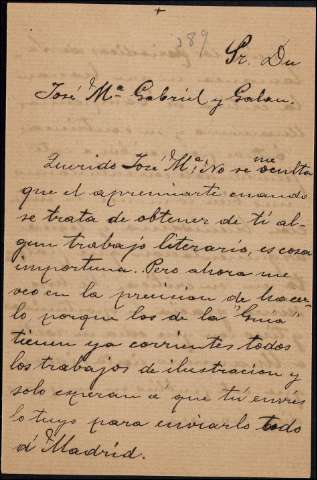 289
Sr. Dn
José Mª Gabriel y Galan.
Querido José Mª: No se me oculta
que el apremiarte cuando
se trata de obtener de tí al-
gun trabajo literario, es cosa
importuna. Pero ahora me
veo en la precision de hacer-
lo porque los de la "Guia"
tienen ya corrientes todos
los trabajos de ilustracion y
solo esperan á que tú envies
lo tuyo para enviarlo todo
á Madrid.